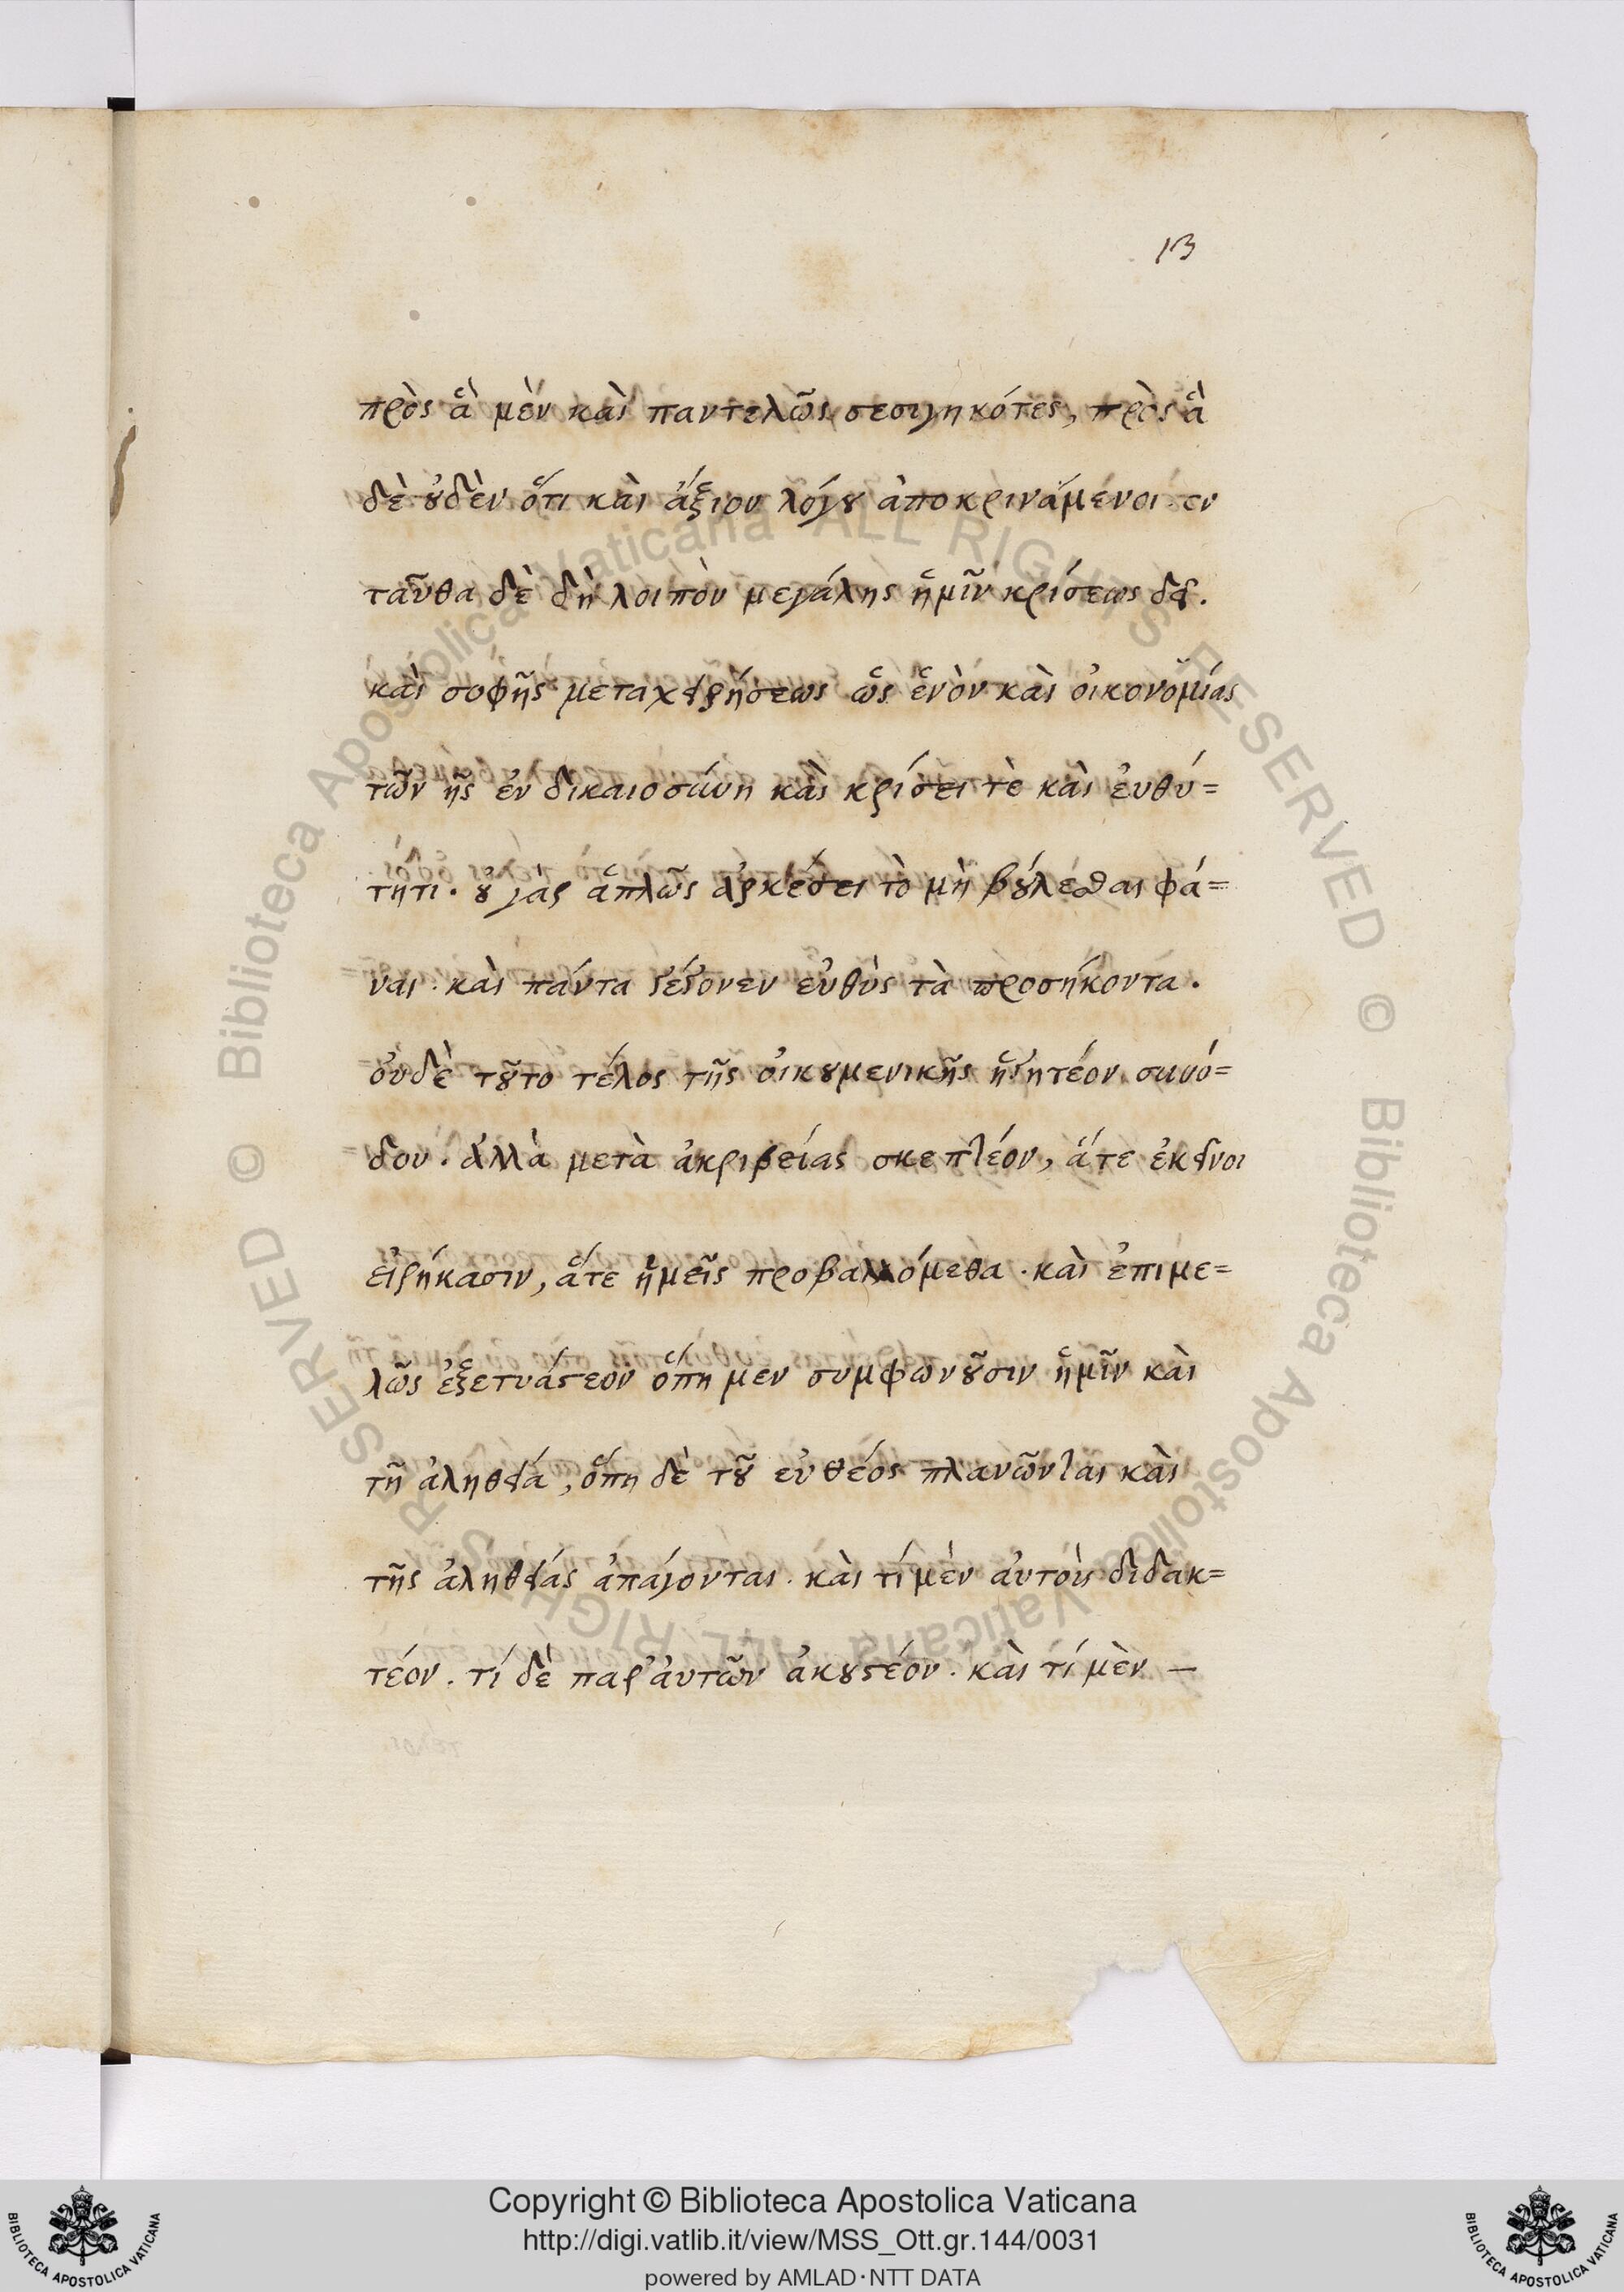 13
πρὸς ἃ μὲν καὶ παντελῶς σεσιγηκότες, πρὸς ἃ
δὲ οὐδὲν ὅτι καὶ ἄξιον λόγου ἀποκρινάμενοι. ἐν
ταῦθα δὲ δὴ λοιπὸν μεγάλης ἡμῖν κρίσεως δεῖ.
καὶ σοφῆς μεταχειρήσεως ὡς ἑνὸν καὶ οἰκονομίας
τῶν ῆς ἐν δικαιοσύνη καὶ κρίσει τὲ καὶ ἐυθύ=
τητι. οὐ γὰρ ἁπλῶς ἀρκέσει τὸ μὴ βούλεσθαι φά=
ναι. καὶ πάντα γέγονεν εὐθὺς τὰ προσήκοντα.
ὀυδὲ τοῦτο τέλος τῆς οἰκουμενικῆς ἡγητέον συνό=
δου. ἀλλὰ μετὰ ἀκριβείας σκεπτέον, ἅτε ἐκεῖνοι
εἰρήκασιν, ἅτε ἡμεῖς προβαλλόμεθα. καὶ ἐπιμε=
λῶς ἐξεταστέον ὅπη μεν συμφωνοῦσιν ἡμῖν καὶ
τῆ ἀληθεία, ὅπη δὲ τοῦ εὐθέος πλανῶνται καὶ
τῆς ἀληθείας ἀπάγονται. καὶ τί μὲν ἀυτοὺς διδακ=
τέον. τί δὲ παρ' ἀυτῶν ἀκουστέον. καὶ τί μὲν –
Copyright © Biblioteca Apostolica Vaticana
http://digi.vatlib.it/view/MSS_Ott.gr.144/0031
powered by AMLAD·NTT DATA
BIBLIOTECA APOSTOLICA VATICANA
BIBLIOTECA APOSTOLICA VATICANA
© Biblioteca Apostolica Vaticana ALL RIGHTS RESERVED © Biblioteca Apostolica Vaticana ALL RIGHTS RESERVED